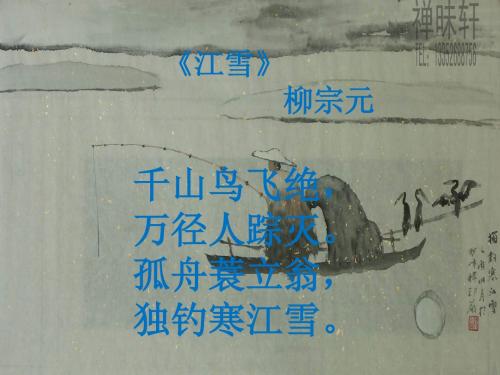 禅昧轩
《江雪》
柳宗元
千山鸟飞绝，
万径人踪灭。
孤舟蓑立翁，
独钓寒江雪。
独钓寒江雪